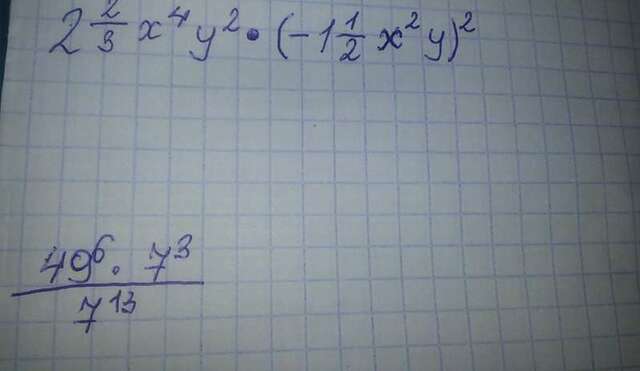 2 2/3 x⁴y² • (-1 1/2 x²y)²
49⁶ • 7³
7¹³